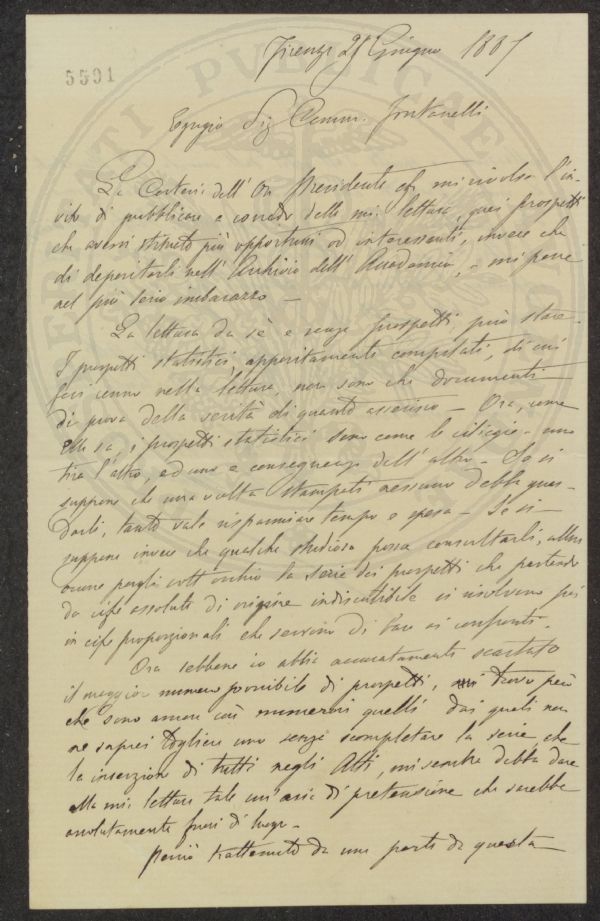 Firenze 28 Giugno 1887
5591
Egregio Sig Comm. Fontanelli
La Cortesia dell' On Presidente che mi rivolse l'in-
vito di pubblicare a corredo della mia lettura, quei prospetti
che avessi stimato più opportuni od interessanti, invece che
di depositarli nell' Archivio dell' Accademia, - mi pone
nel più serio imbarazzo -
La lettura da sè e senza prospetti, può stare -
I prospetti statistici, appositamente compilati, di cui
feci cenno nella lettura, non sono che documenti
di prova della verità di quanto asserisco - Ora, come
Ella sa, i prospetti statistici sono come le ciliegie - una
tira l'altra, ed uno è conseguenza dell' altro - Se si
suppone che una volta stampati nessuno debba guar-
darli, tanto vale risparmiare tempo e spesa - Se si
suppone invece che qualche studioso possa consultarli, allora
occorre porgli sott'occhio la serie dei prospetti che partendo
da cifre assolute di origine indiscutibile si risolvono poi
in cifre proporzionali che servono di base ai confronti -
Ora sebbene io abbia accuratamente scartato
il maggior numero possibile di prospetti, trovo però
che sono ancora così numerosi quelli dai quali non
ne saprei togliere uno senza scompletare la serie, che
la inserzione di tutti negli Atti, mi sembra debba dare
alla mia lettura tale un'aria di pretensione che sarebbe
assolutamente fuori di luogo -
Perciò trattenuto da una parte da questa